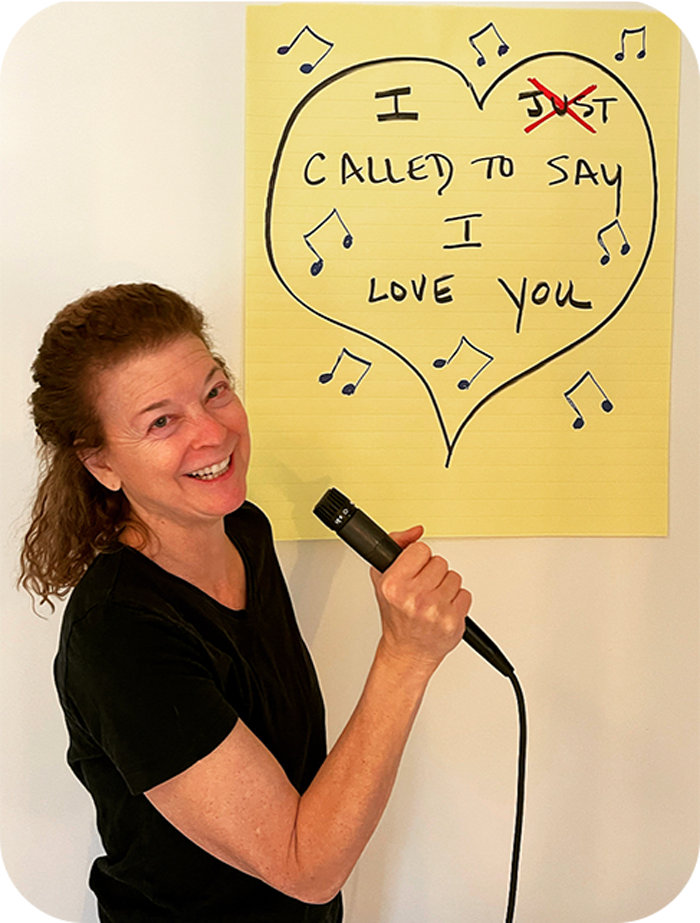 I JUST
CALLED TO SAY
I
LOVE YOU